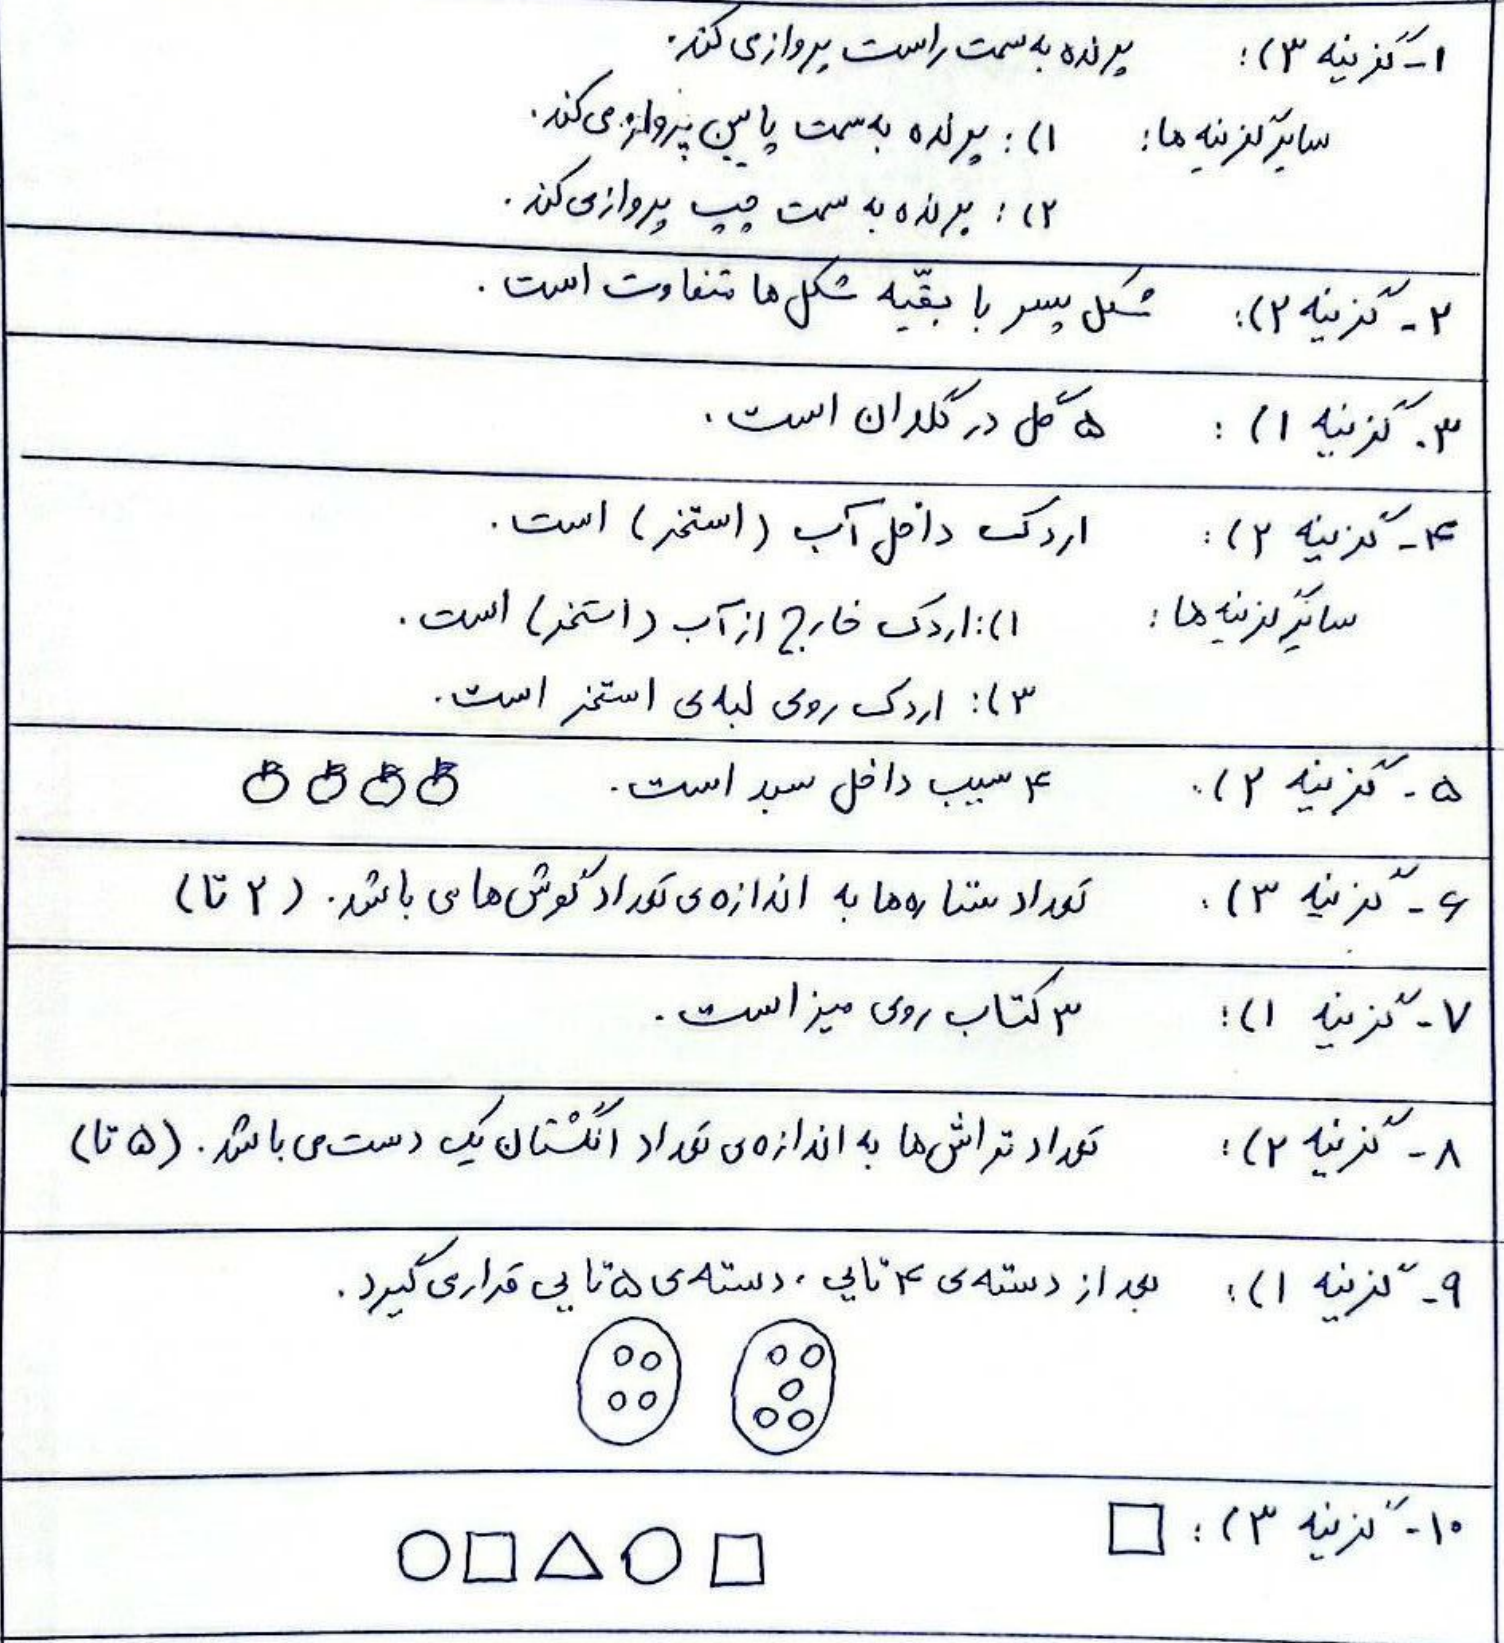 ۱- گزینه ۳): پرنده به سمت راست پرواز می کند.
سایر گزینه ها: ۱): پرنده به سمت پایین پرواز می کند.
۲): پرنده به سمت چپ پرواز می کند.
۲- گزینه ۲): شکل پسر با بقّیه شکل ها متفاوت است.
۳- گزینه ۱): ۵ گل در گلدان است.
۴- گزینه ۲): اردک داخل آب (استخر) است.
سایر گزینه ها: ۱): اردک خارج از آب (استخر) است.
۳): اردک روی لبه ی استخر است.
۵- گزینه ۲). ۴ سیب داخل سبد است.
۶- گزینه ۳). تعداد ستاره ها به اندازه ی تعداد گوش ها می باشد. (۲ تا)
۷- گزینه ۱): ۳ کتاب روی میز است.
۸- گزینه ۲): تعداد تراش ها به اندازه ی تعداد انگشتان یک دست می باشد. (۵ تا)
۹- گزینه ۱): بعد از دسته ی ۴ تایی، دسته ی ۵ تایی قرار می گیرد.
۱۰- گزینه ۳):